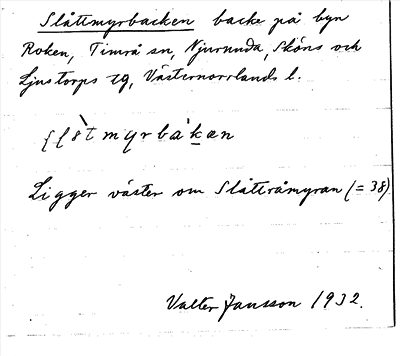 Slåttmyrbacken backe på byn
Roken, Timrå sn, Njurunda, Sköns och
Ljustorps tg, Västernorrlands l.
myrbàkæn
Ligger väster om Slåtträmyran (= 38)
Valter Jansson 1932.